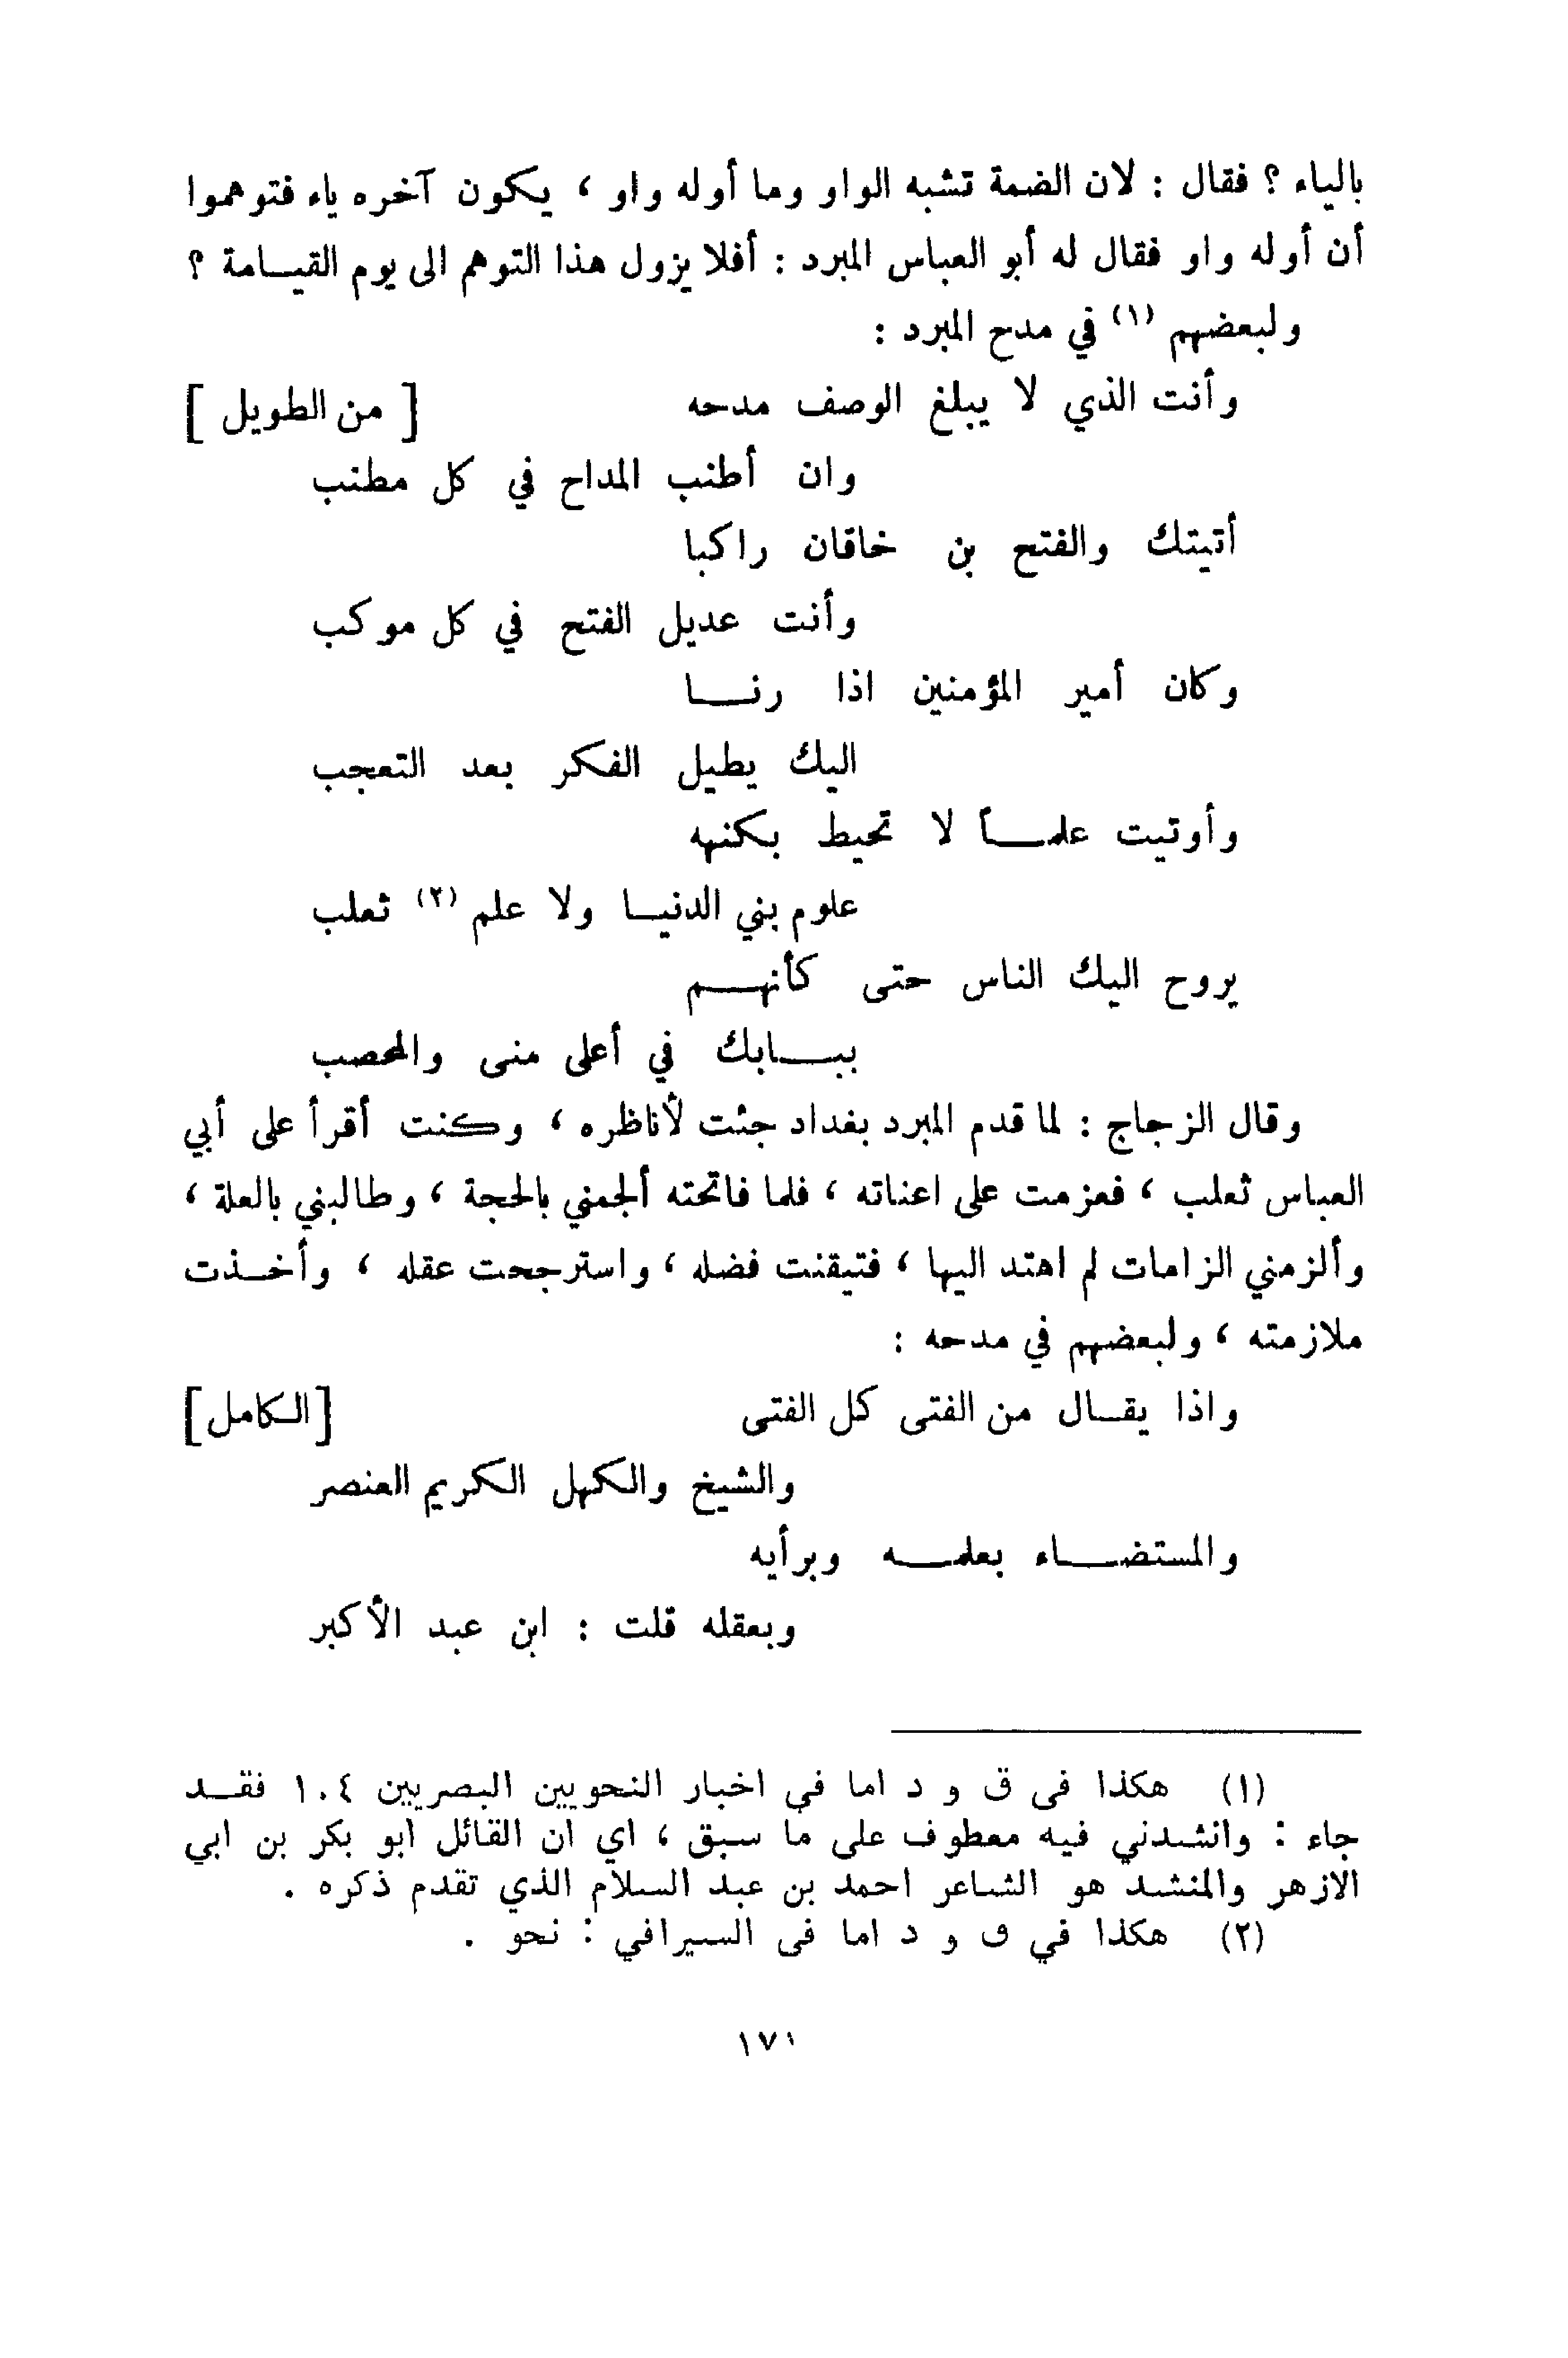 بالياء ؟ فقال : لان الضمة تشبه الواو وما أوله واو ، يكون آخره ياء فتوهموا
أن أوله واو فقال له أبو العباس المبرد : أفلا يزول هذا التوهم الى يوم القيامة ؟
ولبعضهم (١) في مدح المبرد :
وأنت الذي لا يبلغ الوصف مدحه [ من الطويل ]
وان أطنب المداح في كل مطنب
أتيتك والفتح بن خاقان راكبا
وأنت عديل الفتح في كل موكب
وكان أمير المؤمنين اذا رنا
اليك يطيل الفكر بعد التعجب
وأوتيت علماً لا تحيط بكنهه
علوم بني الدنيا ولا علم (٢) ثعلب
يروح اليك الناس حتى كأنهم
ببابك في أعلى منى والمحصب
وقال الزجاج : لما قدم المبرد بغداد جئت لأناظره ، وكنت أقرأ على أبي
العباس ثعلب ، فعزمت على اعناته ، فلما فاتحته ألجمني بالحجة ، وطالبني بالعلة ،
وألزمني الزامات لم اهتد اليها ، فتيقنت فضله ، واسترجحت عقله ، وأخذت
ملازمته ، ولبعضهم في مدحه :
واذا يقال من الفتى كل الفتى [الكامل]
والشيخ والكهل الكريم العنصر
والمستضاء بعلمه وبرأيه
وبعقله قلت : ابن عبد الأكبر
(١) هكذا في ق و د اما في اخبار النحويين البصريين ١٠٤ فقد
جاء : وانشدني فيه معطوف على ما سبق ، اي ان القائل ابو بكر بن ابي
الازهر والمنشد هو الشاعر احمد بن عبد السلام الذي تقدم ذكره .
(٢) هكذا في ق و د اما في السيرافي : نحو .
١٧١